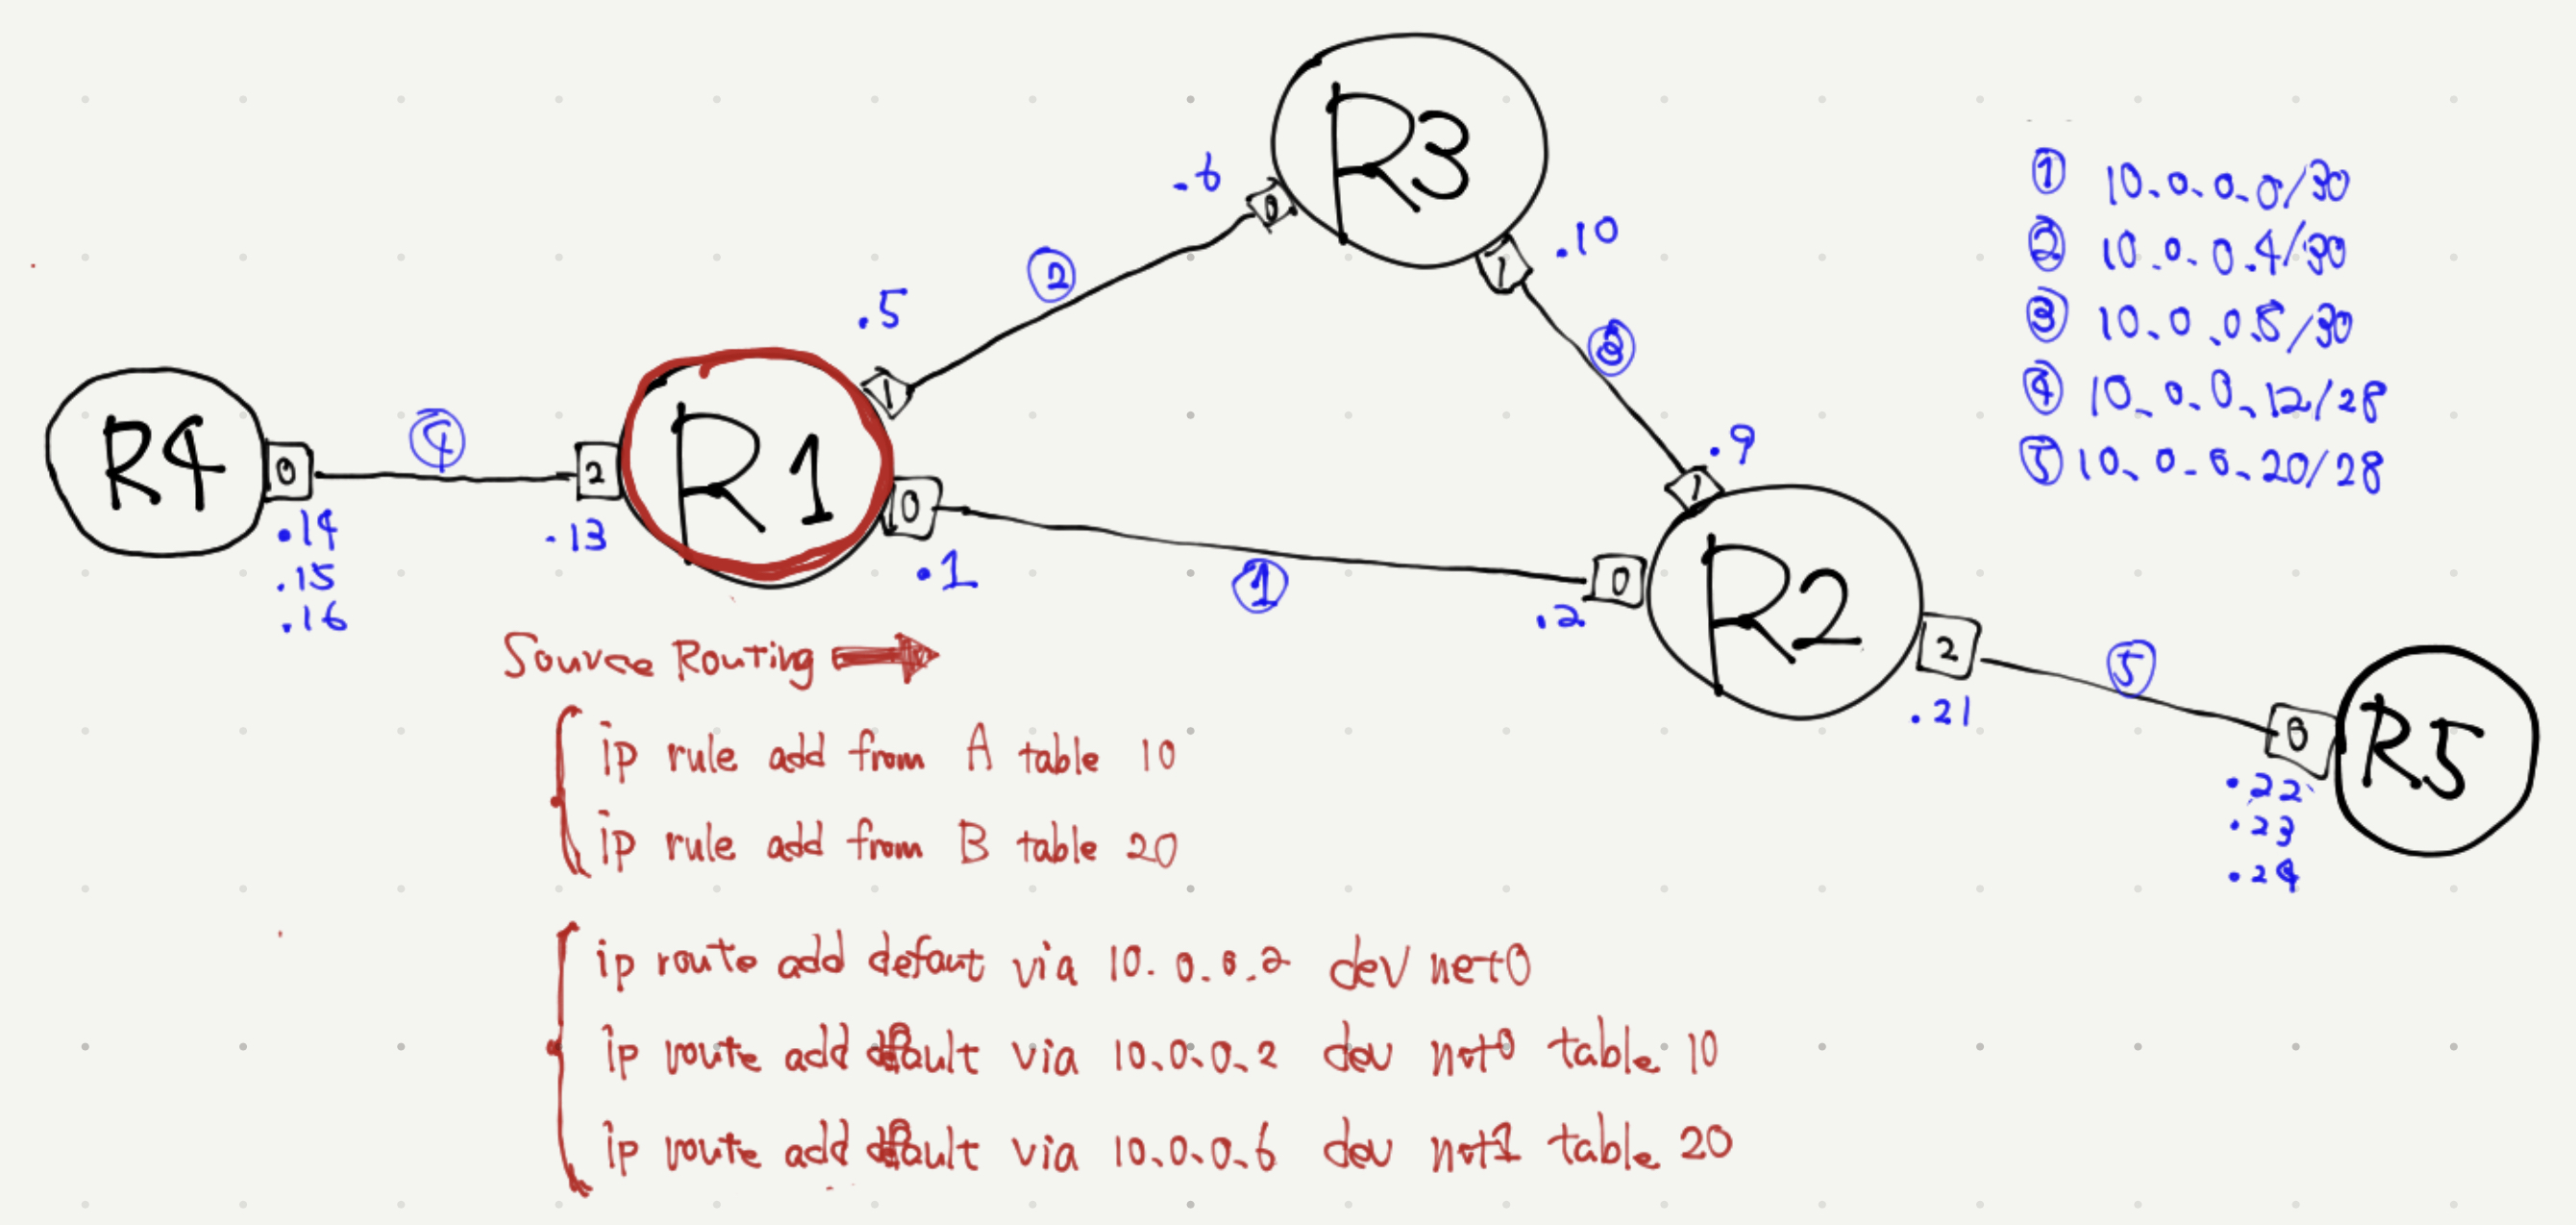 R3
.6
0
.10
1
2
.5
3
1
R4
0
4
2
R1
0
.9
1
.14
.15
.16
.13
.1
1
0
.2
R2
2
.21
5
0
R5
.22
.23
.24
① 10.0.0.0/30
② 10.0.0.4/30
③ 10.0.0.8/30
④ 10.0.0.12/28
⑤ 10.0.0.20/28
Source Routing
ip rule add from A table 10
ip rule add from B table 20
ip route add defaut via 10.0.0.2 dev net0
ip route add default via 10.0.0.2 dev net0 table 10
ip route add default via 10.0.0.6 dev net1 table 20